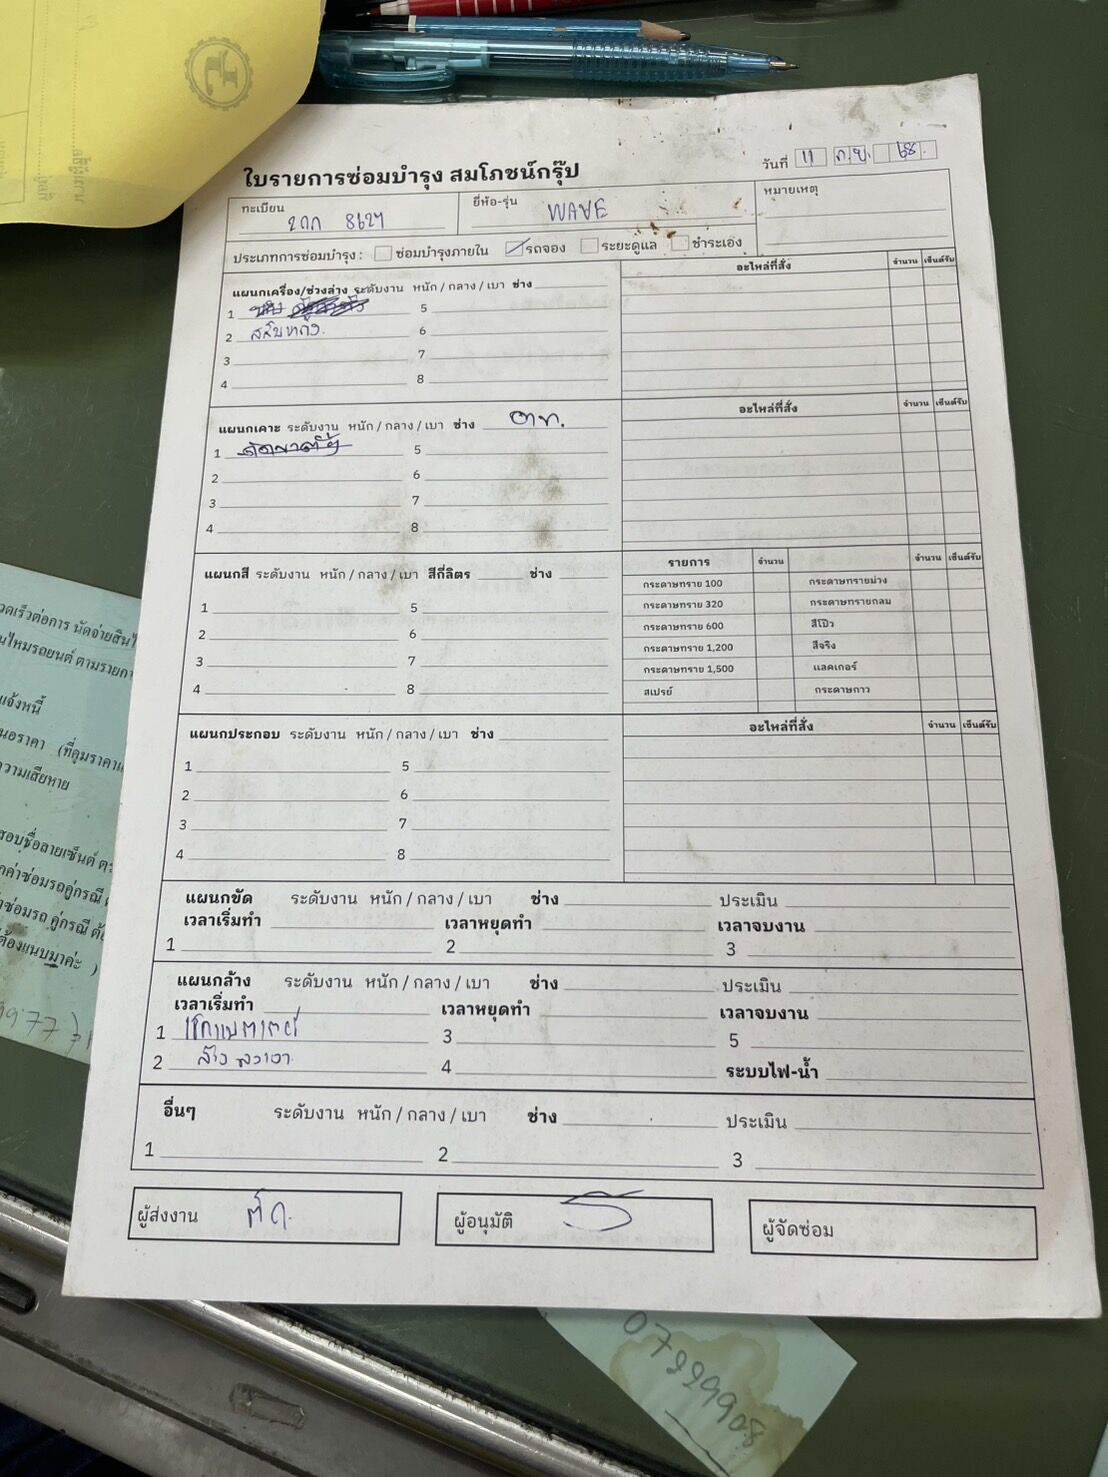 ใบรายการซ่อมบำรุง สมโภชน์กรุ๊ป
วันที่ 11 ก.ย. 68.
ทะเบียน 2กก 8627
ยี่ห้อ-รุ่น WAVE
หมายเหตุ
ประเภทการซ่อมบำรุง : ซ่อมบำรุงภายใน รถจอง ระยะดูแล ชำระเอง
แผนกเครื่อง/ช่วงล่าง ระดับงาน หนัก / กลาง / เบา ช่าง
อะไหล่ที่สั่ง จำนวน เซ็นต์รับ
1 5
2 6
3 7
4 8
แผนกเคาะ ระดับงาน หนัก / กลาง / เบา ช่าง
อะไหล่ที่สั่ง จำนวน เซ็นต์รับ
1 5
2 6
3 7
4 8
แผนกสี ระดับงาน หนัก / กลาง / เบา สีกี่ลิตร ช่าง
รายการ จำนวน จำนวน เซ็นต์รับ
กระดาษทราย 100 กระดาษทรายม่วง
กระดาษทราย 320 กระดาษทรายกลม
กระดาษทราย 600 สีโป๊ว
กระดาษทราย 1,200 สีจริง
กระดาษทราย 1,500 แลคเกอร์
สเปรย์ กระดาษกาว
1 5
2 6
3 7
4 8
แผนกประกอบ ระดับงาน หนัก / กลาง / เบา ช่าง
อะไหล่ที่สั่ง จำนวน เซ็นต์รับ
1 5
2 6
3 7
4 8
แผนกขัด ระดับงาน หนัก / กลาง / เบา ช่าง ประเมิน
เวลาเริ่มทำ เวลาหยุดทำ เวลาจบงาน
1 2 3
แผนกล้าง ระดับงาน หนัก / กลาง / เบา ช่าง ประเมิน
เวลาเริ่มทำ เวลาหยุดทำ เวลาจบงาน
1 เช็กแบตเตอรี่ 3 5
2 ล้าง 4 ระบบไฟ-น้ำ
อื่นๆ ระดับงาน หนัก / กลาง / เบา ช่าง ประเมิน
1 2 3
ผู้ส่งงาน
ผู้อนุมัติ
ผู้จัดซ่อม
วดเร็วต่อการ นัดจ่ายสินไ
นไหมรถยนต์ ตามรายกา
แจ้งหนี้
นอราคา (ที่คุมราคา
ความเสียหาย
สอบชื่อลายเซ็นต์
กค่าซ่อมรถคู่กรณี
าซ่อมรถ คู่กรณี
ต้องแนบมาค่ะ )